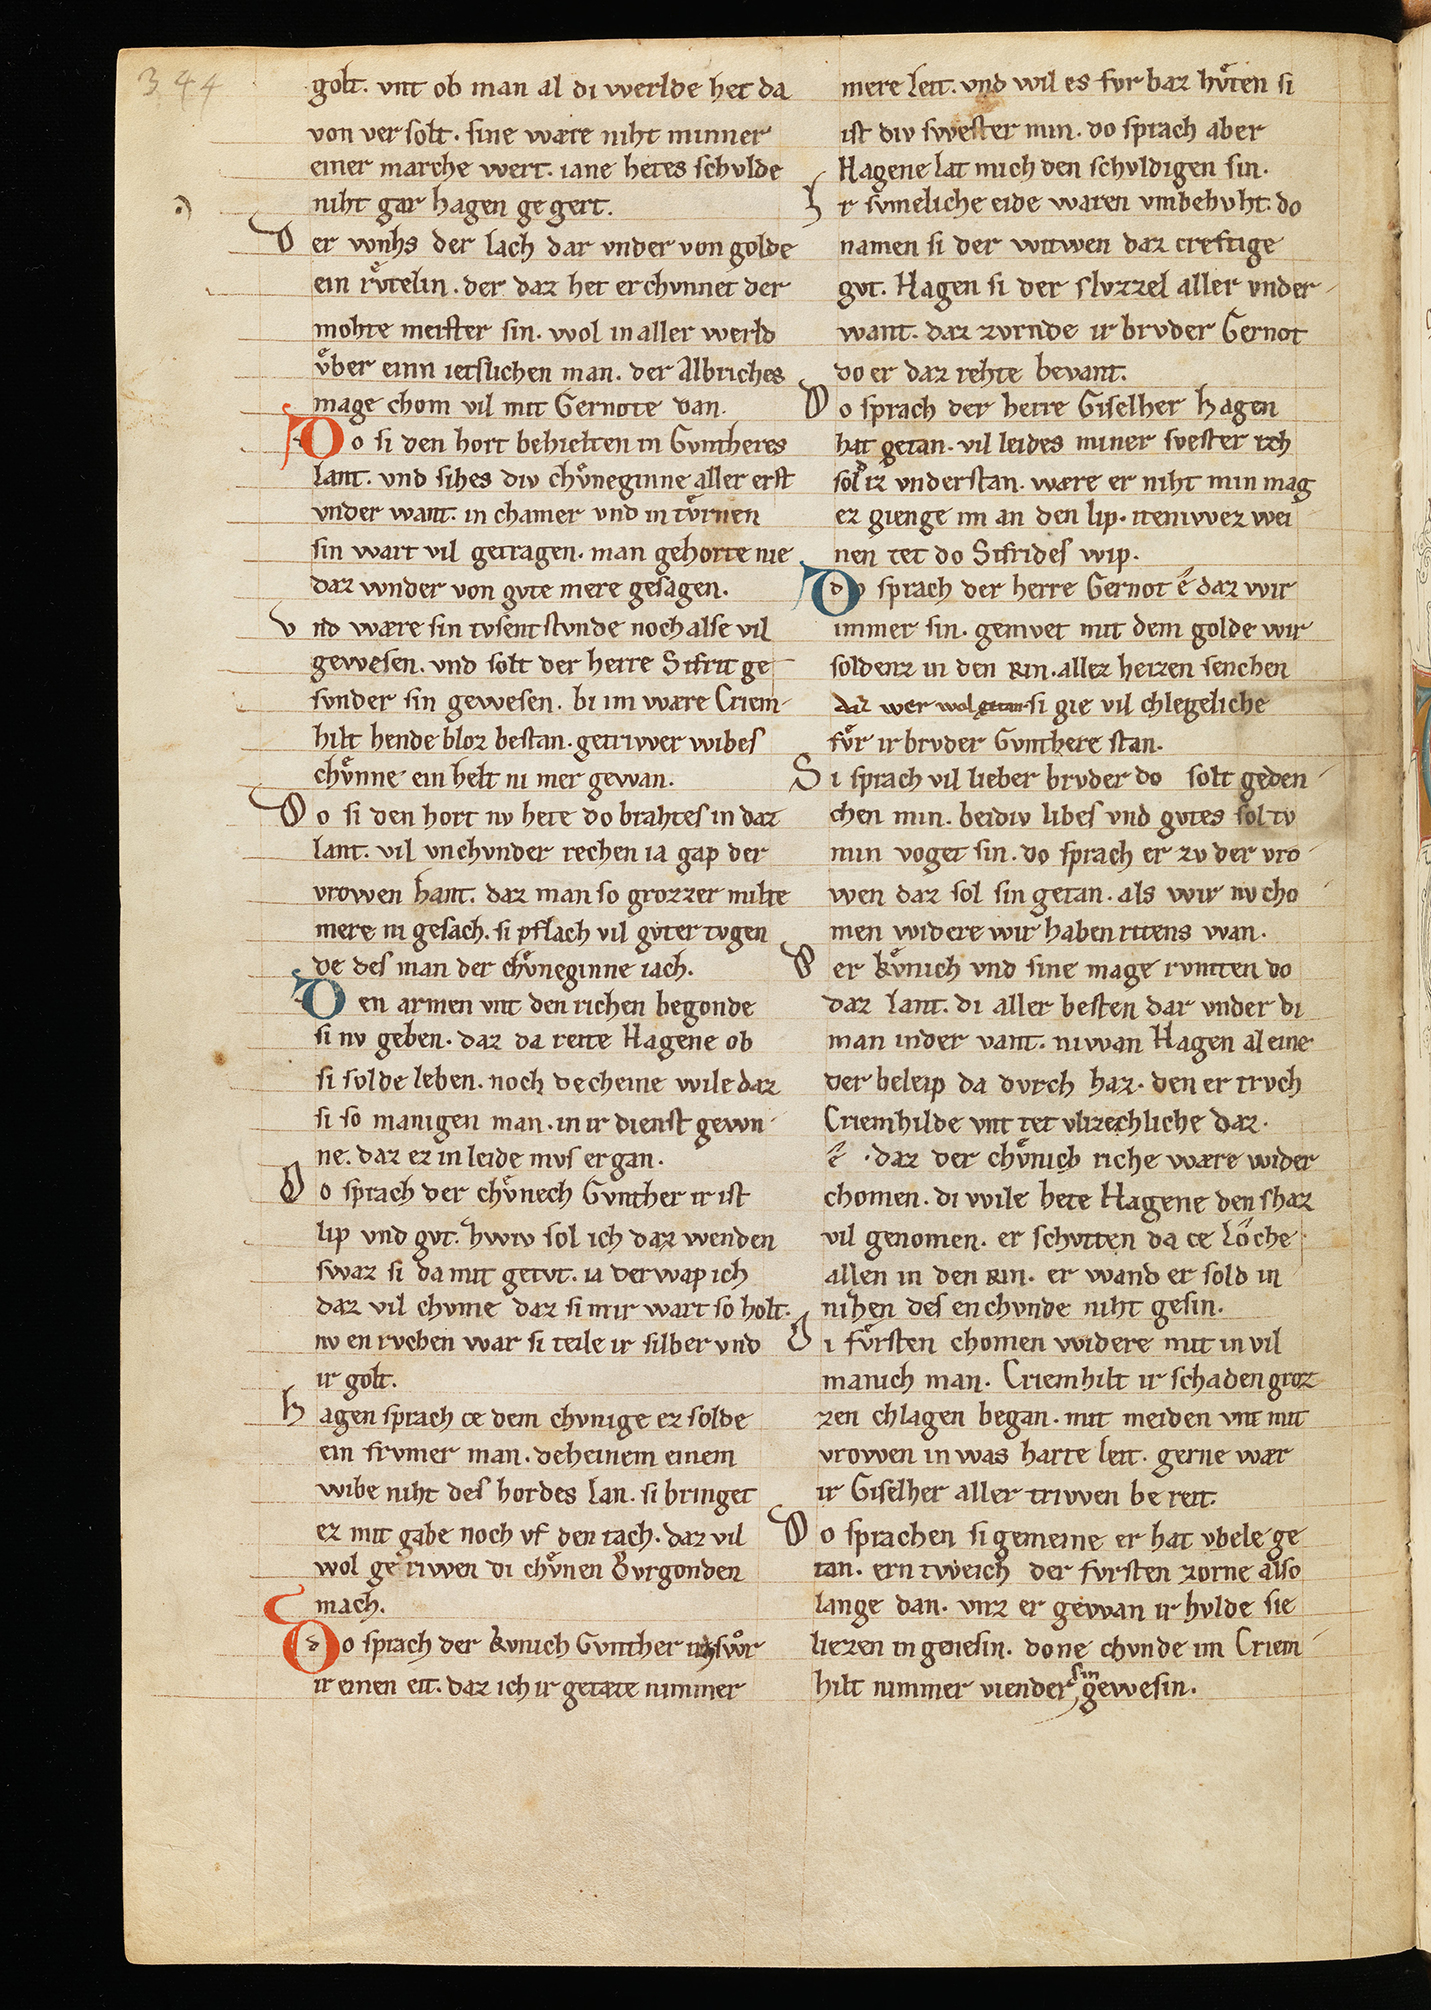 344
golt. vnt ob man al di werlde het da
von ver solt. sine wære niht minner
einer marche wert. iane hetes schvlde
niht gar hagen ge gert.
Der wnhs der lach dar vnder von golde
ein rv̊telin. der daz het erchvnnet der
mohte meister sin. wol in aller werld
v̊ber einn ietslichen man. der Albriches
mage chom vil mit Gernote dan.
Do si den hort behielten in Gvntheres
lant. vnd sihes div chv̊neginne aller erst
vnder want. in chamer vnd in tv̊rnen
sin wart vil getragen. man gehorte nie
daz wnder von gvte mere gesagen.
vnd wære sin tvsent stvnde noch alse vil
gewesen. vnd solt der herre Sifrit ge
svnder sin gewesen. bi im wære Criem-
hilt hende bloz bestan. getriwer wibes
chv̊nne ein helt ni mer gewan.
Do si den hort nv hete do brahtes in daz
lant. vil vnchvnder rechen ia gap der
vrowen hant. daz man so grozzer milte
mere ni gesach. si pflach vil gv̊ter tvgen
de des man der chv̊neginne iach.
Den armen vnt den richen begonde
si nv geben. daz da reite Hagene ob
si solde leben. noch decheine wile daz
si so manigen man. in ir dienst gewn-
ne. daz ez in leide mvs ergan.
Do sprach der chv̊nech Gvnther ir ist
lip vnd gvt. hwiv sol ich daz wenden
swaz si da mit getvt. ia verwap ich
daz vil chvme daz si mir wart so holt.
nv en rvchen war si teile ir silber vnd
ir golt.
hagen sprach ce dem chvnige ez solde
ein frvmer man. deheinem einem
wibe niht des hordes lan. si bringet
ez mit gabe noch vf den tach. daz vil
wol geriwen di chv̊nen Bvrgonden
mach.
Do sprach der kvnich Gvnther ich swr
ir einen eit. daz ich ir getæte nimmer
mere leit. vnd wil es fvrbaz hv̊ten si
ist div swester min. do sprach aber
Hagene lat mich den schvldigen sin.
Ir svmeliche eide waren vmbehvht. do
namen si der witwen daz creftige
gvt. Hagen si der slvzzel aller vnder-
want. daz zvrnde ir brvder Gernot
do er daz rehte bevant.
Do sprach der herre Giselher Hagen
hat getan. vil leides miner svester ich
solt iz vnderstan. wære er niht min mag
ez gienge im an den lip. iteniwez wei
nen tet do Sifrides wip.
Do sprach der herre Gernot ê daz wir
immer sin. gemvet mit dem golde wir
soldenz in den Rin. allez heizen senchen
daz wer wol getan si gie vil chlegeliche
fv̊r ir brvder Gvnthere stan.
Si sprach vil lieber brvder do solt geden-
chen min. beidiv libes vnd gvtes soltv
min voget sin. do sprach er zv der vro-
wen daz sol sin getan. als wir nv cho-
men widere wir haben ritens wan.
Der kv̊nich vnd sine mage rvmten do
daz lant. di aller besten dar vnder di
man inder vant. niwan Hagen aleine
der beleip da dvrch haz. den er trvch
Criemhilde vnt tet vlizechliche daz.
ê. daz der chv̊nich riche wære wider
chomen. di wile hete Hagene den shaz
vil genomen. er schvtten da ce Lôche
allen in den Rin. er wand er sold in
nihen des enchvnde niht gesin.
Di fv̊rsten chomen widere mit in vil
manich man. Criemhilt ir schaden groz
zen chlagen began. mit meiden vnt mit
vrowen in was harte leit. gerne wær
ir Giselher aller triwen bereit.
Do sprachen si gemeine er hat vbele ge
tan. ern tweich der fvrsten zorne also
lange dan. vnz er gewan ir hvlde sie
liezen in genesin. done chvnde im Criem-
hilt nimmer viender sin gewesin.